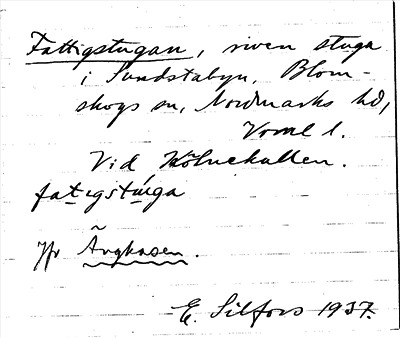 Fattigstugan, riven stuga
i Sundstabyn, Blom-
skogs sn, Nordmarks hd,
Värml l.
Vid Kölnekullen.
fatigstuga
Jfr Ängkasen.
E. Silfors 1937.